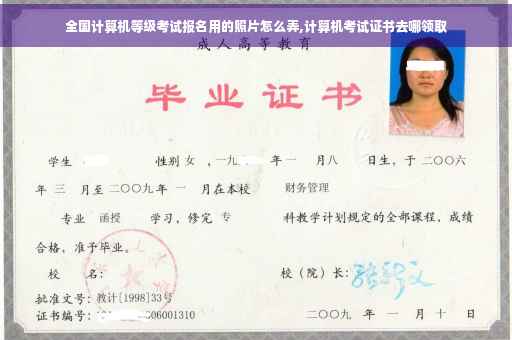 全国计算机等级考试报名用的照片怎么弄,计算机考试证书去哪领取
成人高等教育
毕业证书
学生 性别 女 ,一九 年 一 月八 日生，于 二〇〇六
年 三 月至 二〇〇九 年 一 月在本校 财务管理
专业 函授 学习，修完 专 科教学计划规定的全部课程，成绩
合格，准予毕业。
校 名： 校（院）长：
批准文号：教计[1998]33号
证书编号： 06001310 二〇〇九 年 一 月 十 日